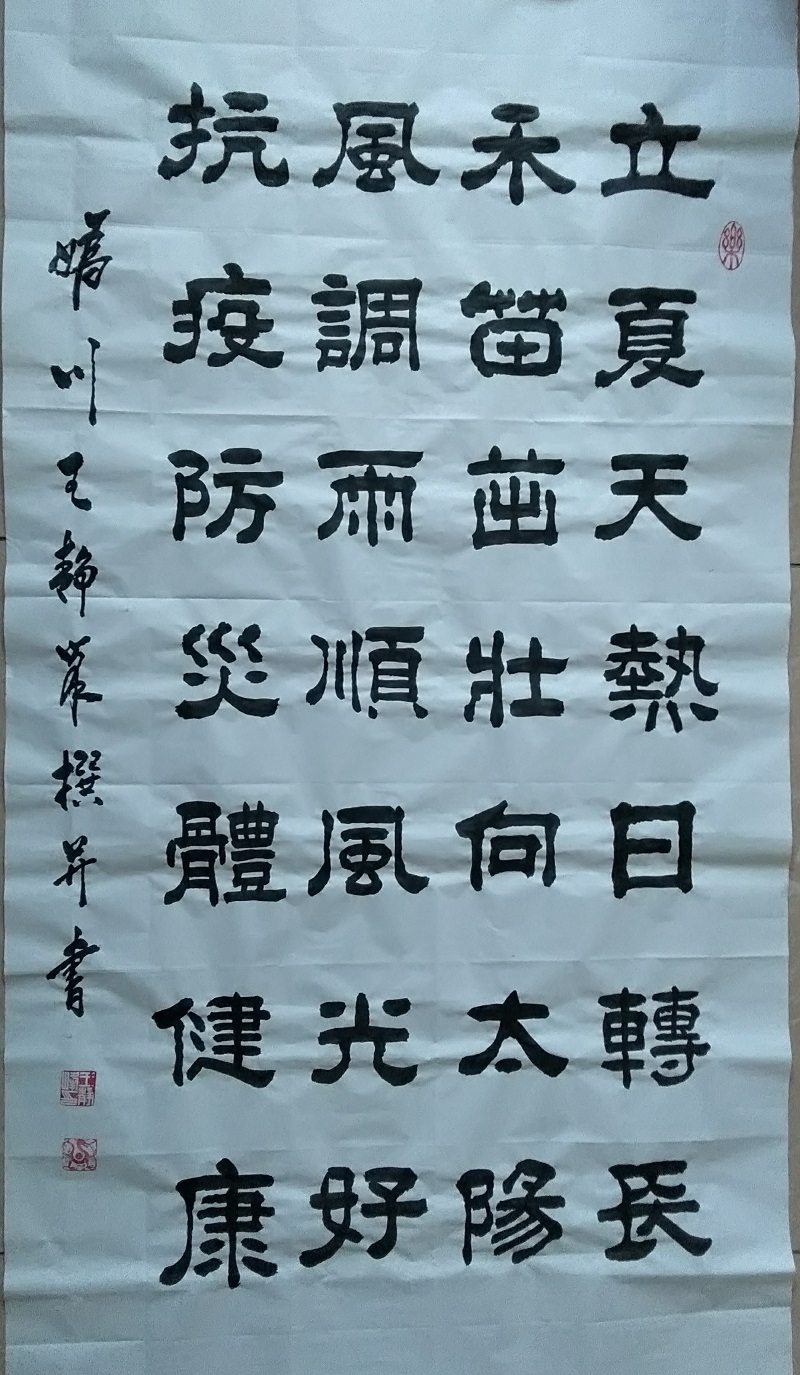 立夏天熱日轉長
禾苗茁壯向太陽
風調雨順風光好
抗疫防災體健康
川王靜業撰并書
樂